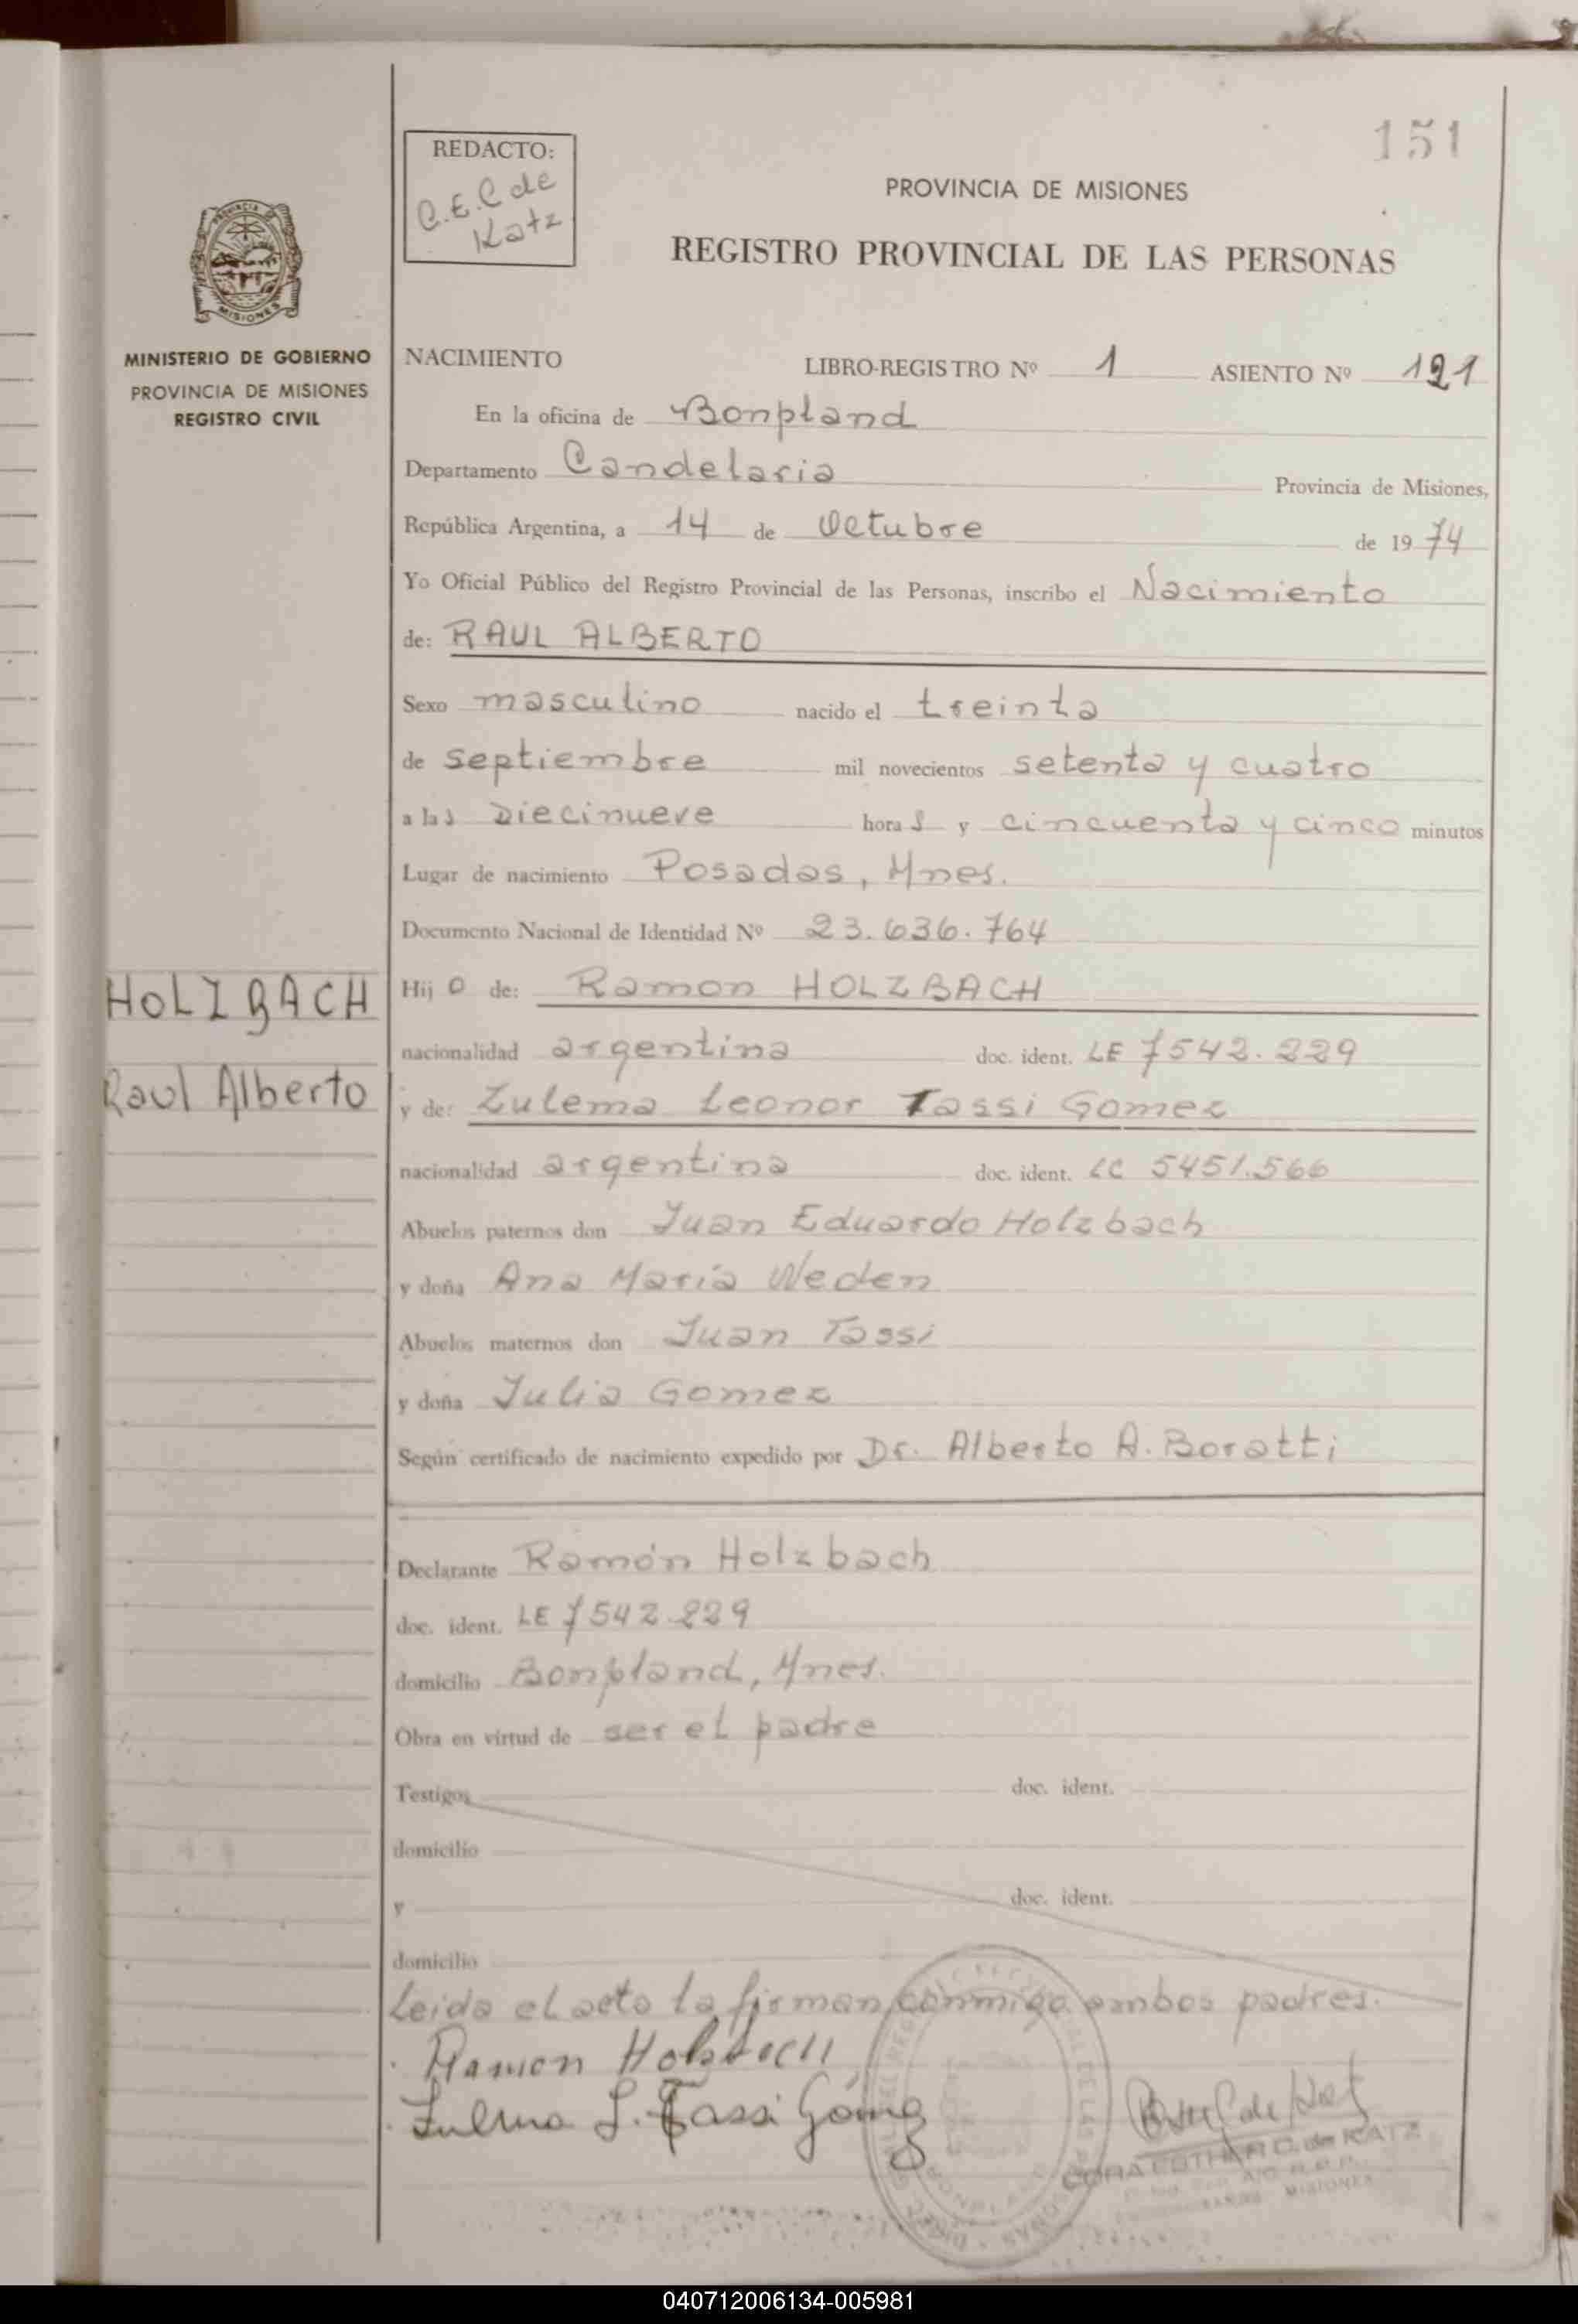 151
REDACTO:
C.E.C de
Katz
PROVINCIA DE MISIONES
REGISTRO PROVINCIAL DE LAS PERSONAS
PROVINCIA DE
MISIONES
MINISTERIO DE GOBIERNO
PROVINCIA DE MISIONES
REGISTRO CIVIL
NACIMIENTO LIBRO-REGISTRO Nº 1 ASIENTO Nº 191
En la oficina de Bonpland
Departamento Candelaria Provincia de Misiones,
República Argentina, a 14 de Octubre de 1974
Yo Oficial Público del Registro Provincial de las Personas, inscribo el Nacimiento
de: RAUL ALBERTO
Sexo masculino nacido el treinta
de septiembre mil novecientos setenta y cuatro
a las Diecinueve horas y cincuenta y cinco minutos
Lugar de nacimiento Posadas, Mnes.
Documento Nacional de Identidad Nº 23.636.764
HOLZBACH
Hijo de: Ramon HOLZBACH
nacionalidad argentina doc. ident. LE 7542.229
Raul Alberto
y de: Zulema Leonor Tassi Gomez
nacionalidad argentina doc. ident. LC 5451.566
Abuelos paternos don Juan Eduardo Holzbach
y doña Ana María Weden
Abuelos maternos don Juan Tassi
y doña Julia Gomez
Según certificado de nacimiento expedido por Dr. Alberto A. Boratti
Declarante Ramón Holzbach
doc. ident. LE 7542.229
domicilio Bonpland, Mnes.
Obra en virtud de ser el padre
Testigos doc. ident.
domicilio
y doc. ident.
domicilio
Leida el acta la firman conmigo ambos padres.
Ramon Holzbach
Zulma L. Tassi Gómez
CORA ESTHER C. de KATZ
MISIONES
040712006134-005981